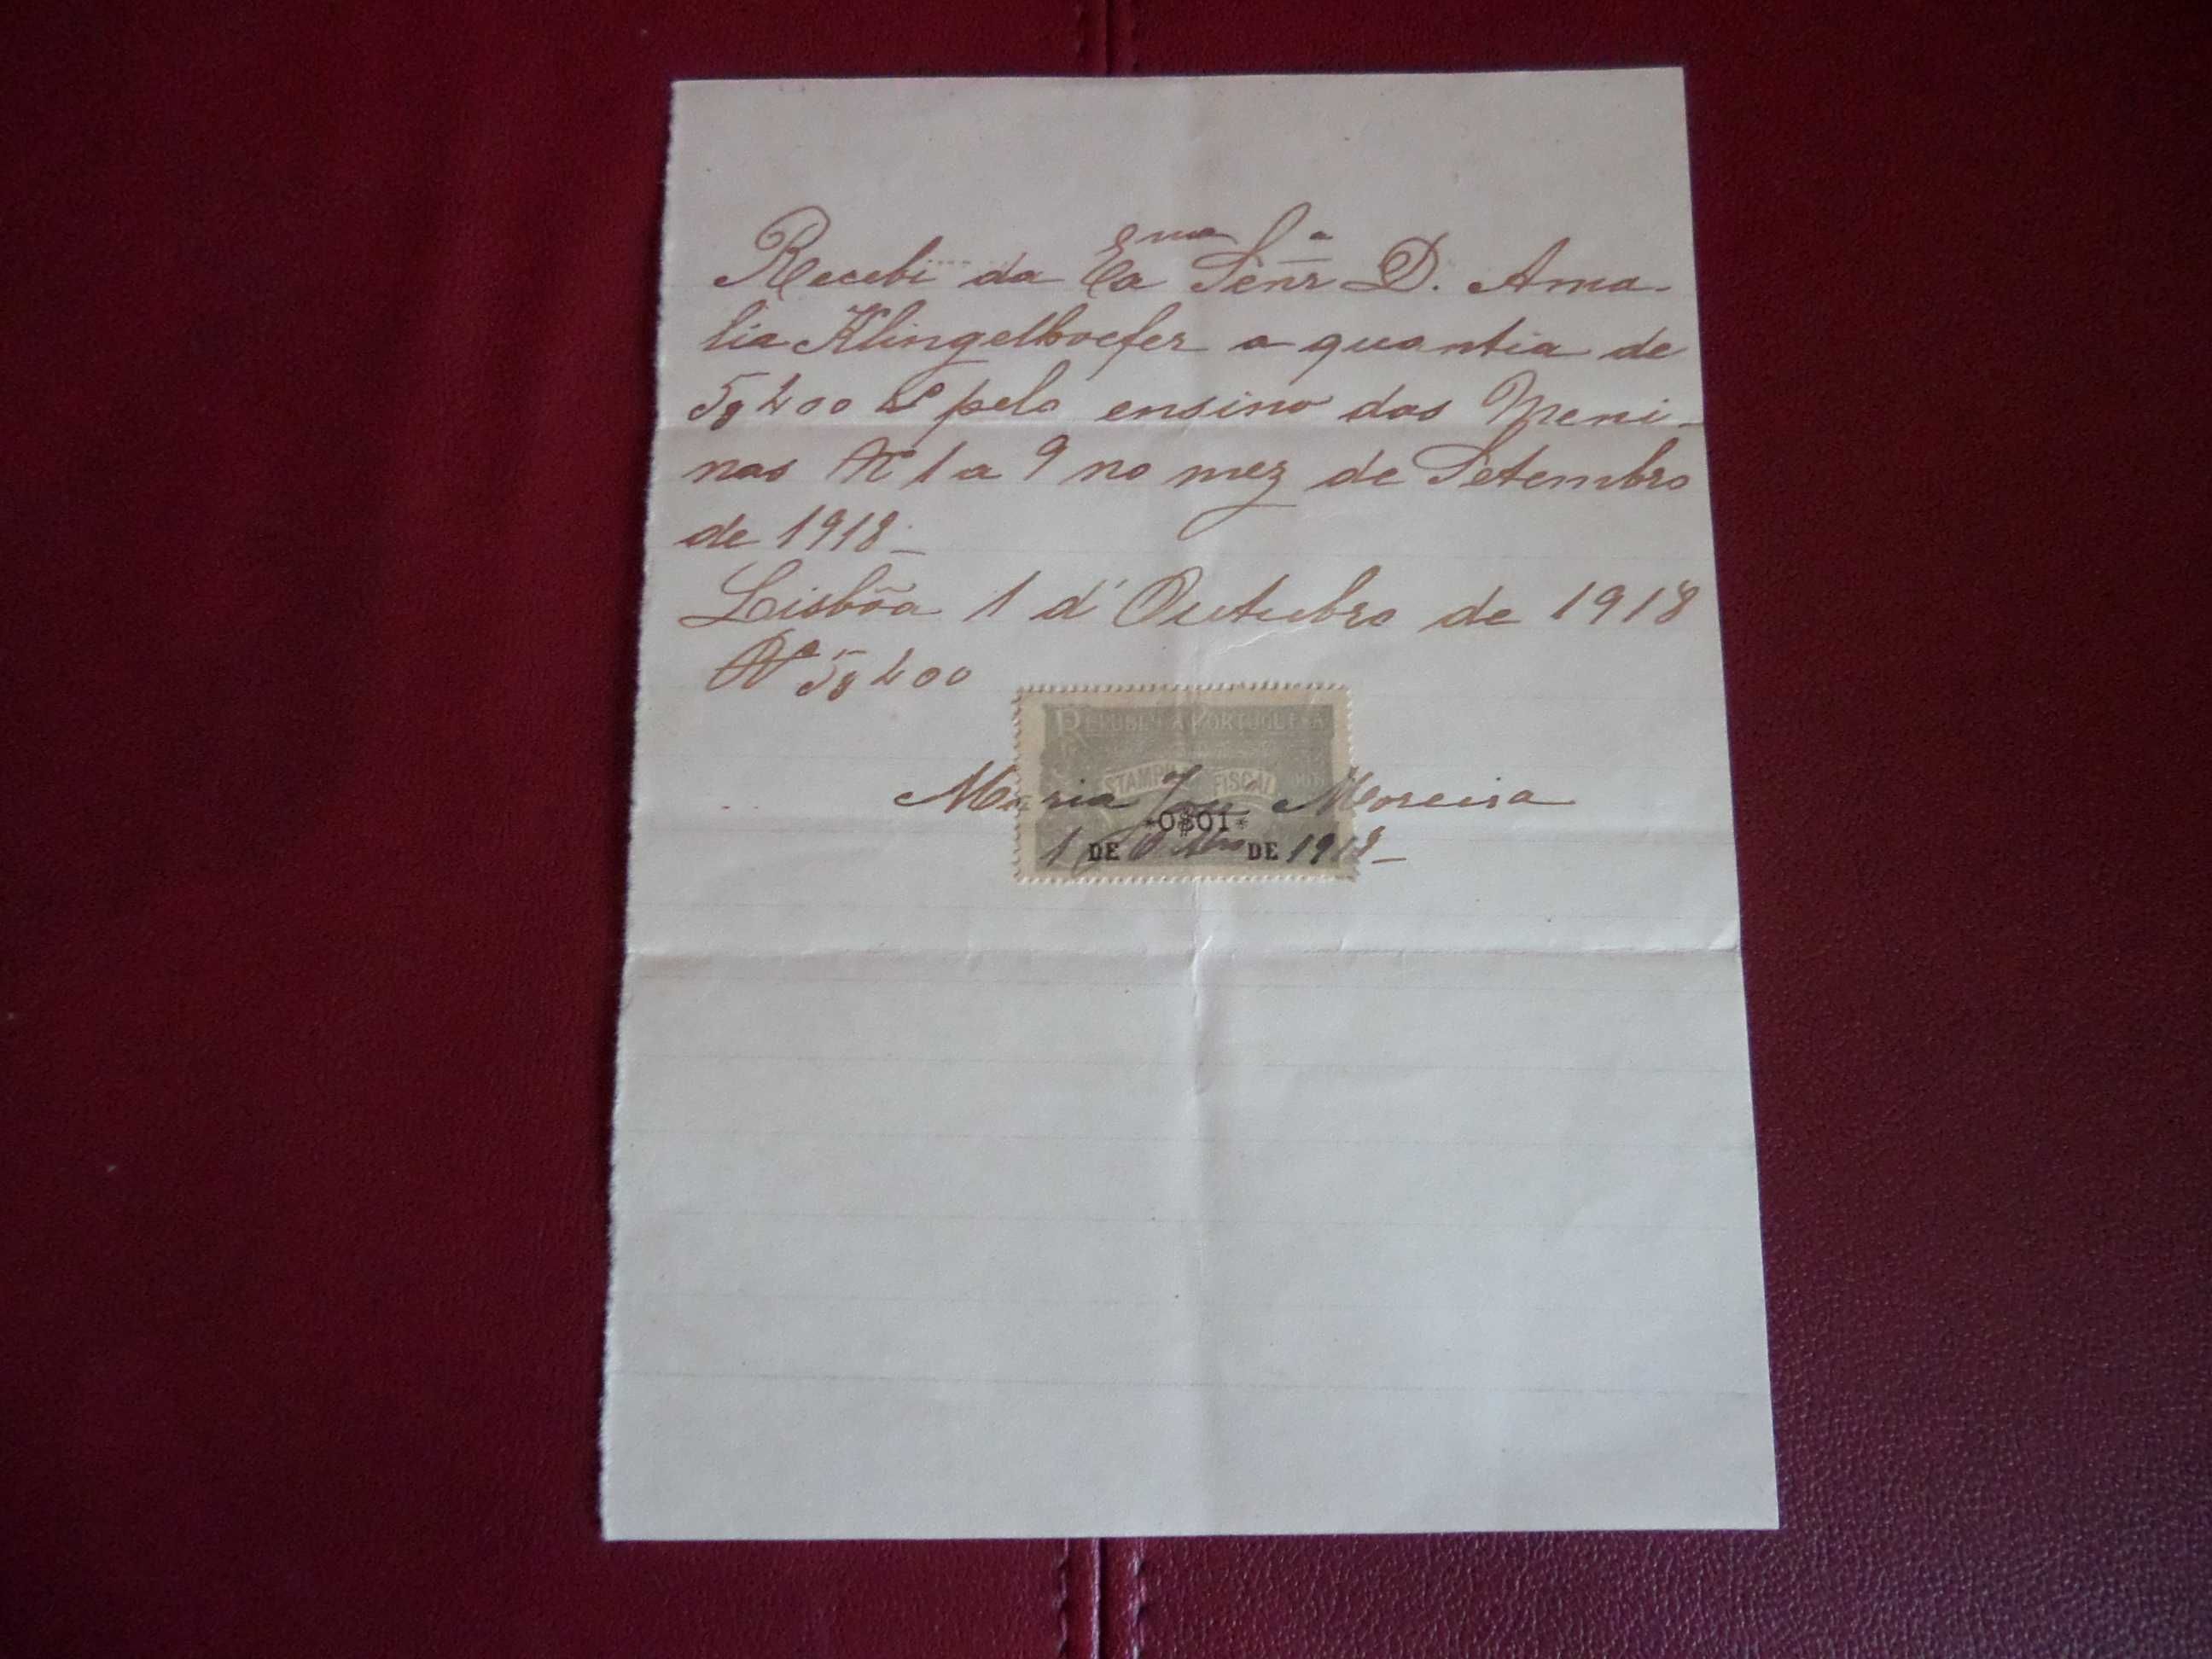 Recebi da Exma Senrª D. Ama-
lia Klingelhoefer a quantia de
5$400 rs pelo ensino das Meni-
nas Nº 1 a 9 no mez de Setembro
de 1918-
Lisbôa 1 d'Outubro de 1918
Nº 5$400
REPUBLICA PORTUGUESA
ESTAMPILHA FISCAL
Maria José Moreira
*0$01*
1 DE Outbro DE 1918-